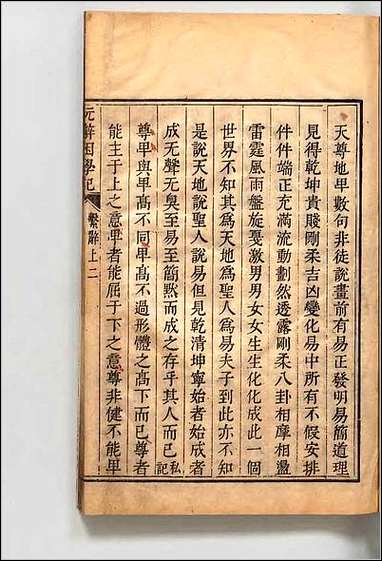 天尊地卑數句非徒說畫前有易正發明易簡道理
見得乾坤貴賤剛柔吉凶變化易中所有不假安排
件件端正充滿流動劃然透露剛柔八卦相摩相盪
雷霆風雨盤旋戞激男男女女生生化化成此一個
世界不知其為天地為聖人為易夫子到此亦不知
是說天地說聖人說易但見乾清坤寧始者始成者
成无聲无臭至易至簡默而成之存乎其人而已私記
尊卑與卑高不同卑高不過形體之高下而已尊者
能主于上之意卑者能屈于下之意尊非健不能卑
繫辭上二